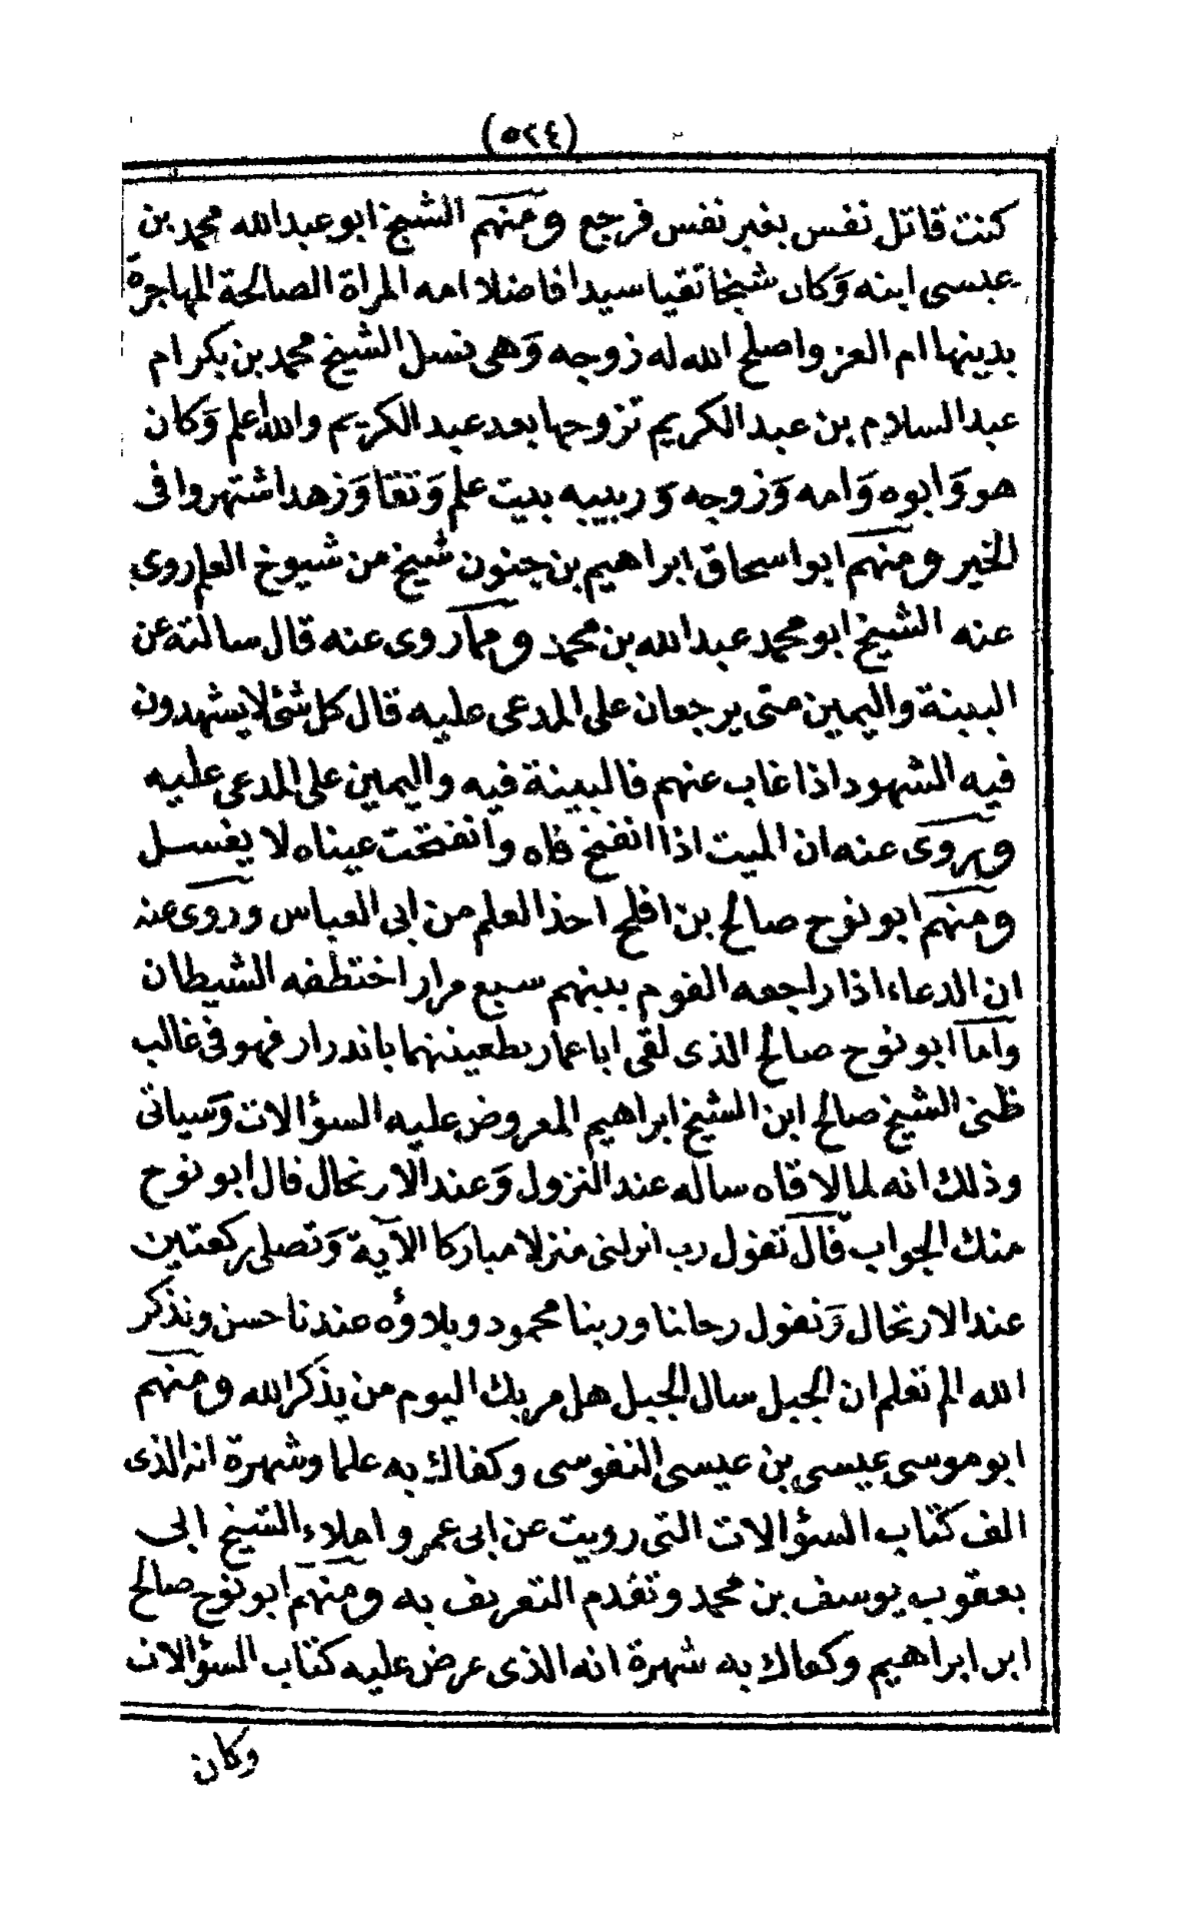 (٥٢٤)
كنت قاتل نفس بغير نفس فرجع ومنهم الشيخ ابو عبد الله محمد بن
عيسى ابنه وكان شيخا تقيا سيدا فاضلا امه المراة الصالحة المهاجرة
بدينها ام العز واصلح الله له زوجه وهى نسل الشيخ محمد بن بكر ام
عبد السلام بن عبد الكريم تزوجها بعد عبد الكريم والله أعلم وكان
هو وابوه وامه وزوجه وربيبه بيت علم وتقا وزهد اشتهروا فى
الخير ومنهم ابو اسحاق ابراهيم بن جنون شيخ من شيوخ العلم روى
عنه الشيخ ابو محمد عبد الله بن محمد ومما روى عنه قال سالته عن
البينة واليمين متى يرجعان على المدعى عليه قال كل شئ لا يشهدون
فيه الشهود اذا غاب عنهم فالبينة فيه واليمين على المدعى عليه
ويروى عنه ان الميت اذا انفخ فاه وانفتحت عيناه لا يغسل
ومنهم ابو نوح صالح بن افلح اخذ العلم من ابى العباس وروى عنه
ان الدعاء اذا راجعه القوم بينهم سبع مرار اختطفه الشيطان
واما ابو نوح صالح الذى لقى ابا عمار بطعينتهما باندرار فهو فى غالب
ظنى الشيخ صالح ابن الشيخ ابراهيم المعروض عليه السؤالات وسياتى
وذلك انه لما لاقاه ساله عند النزول وعند الارتحال قال ابو نوح
منك الجواب قال تقول رب انزلنى منزلا مباركا الآية وتصلى ركعتين
عند الارتحال وتقول رحلنا وربنا محمود وبلاؤه عندنا حسن ونذكر
الله الم تعلم ان الجبل سال الجبل هل مر بك اليوم من يذكر الله ومنهم
ابو موسى عيسى بن عيسى النفوسى وكفاك به علما وشهرة انه الذى
الف كتاب السؤالات التى رويت عن ابى عمرو املاء الشيخ ابى
يعقوب يوسف بن محمد وتقدم التعريف به ومنهم ابو نوح صالح
ابن ابراهيم وكفاك به شهرة انه الذى عرض عليه كتاب السؤالات
وكان